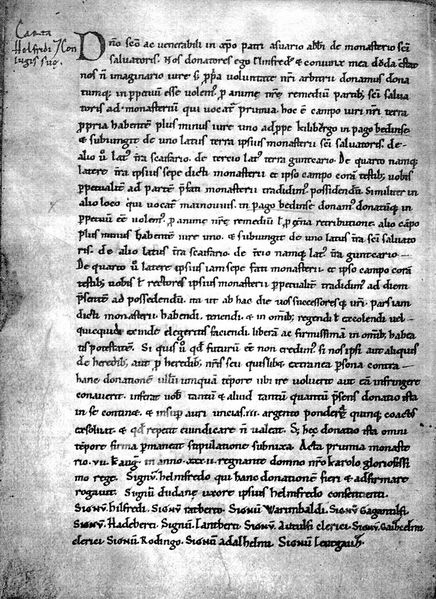 Carta
Helfredi Con
iugis sue
Dño sc̃o ac venerabili in xp̃o patri asuario abb̃i de monasterio sc̃i
saluatoris. Nos donatores ego helmfred' & coniunx mea doda
nos ñ imaginario iure s; p̃pa uoluntate nr̃i arbitrii donamus dona
tumq; in pp̃etuũ esse volem' p̃ anime nr̃e remediũ partib; sc̃i salua
toris ad monasteriũ qui uocat̃ prumia. hoc ẽ campo uiri nr̃i terra
p̃pria habente plus minus iure uno adppe in pago bedinse
& subiungit de uno latus terra ipsius monasterii sc̃i saluatoris. de
alio ũ lat' t̃ra scaifario. de tercio lat' t̃ra guntcario. De quarto namq;
latere t̃ra ipsius sepe dicti monasterii & ipso campo corã testib; uobis
pp̃etualit̃ ad partẽ p̃fati monasterii tradidim' possidendũ. Similiter in
alio loco qui uocat̃ mainouuis in pago bedense donam' donatũq; in
pp̃etuũ eẽ volem' p̃ anime nr̃e remediũ t̃ p̃ et̃na retributione. alio cãpo
plus minus habente iure uno. & subiungit de uno latus t̃ra sc̃i saluato
ris. de alio latus t̃ra scaifario. de t̃cio namq; lat' t̃ra guntcario
De quarto ũ latere ipsius iam sepe fati monasterii. & ipso campo corã
testib; uobis t̃ rectores ipsius monasterii pp̃etualit̃ tradidim' ad diem
p̃sentẽ ad possedendũ. ita ut ab hac die uos successoresq; ur̃i. pars iam
dicti monasterii. habendi. tenendi. & in omib; regendi t̃ excolendi uel
quicquid exinde elegeritis faciendi liberã ac firmissimã in omib; habea
tis potestatẽ. Si quis ũ qd̃ futurũ eẽ non credim' si nos ipsi aut aliquis
de heredib; aut p̃ heredib; nr̃is seu quislibet extranea p̃sona contra
hanc donationẽ ullũ umquã tẽpore uel ire voluerit aut eã infringere
conauerit. inferat uob̃ tantũ & aliud tantũ quantũ p̃sens donatio ista
in se continet & insup̃ auri uncias .iii. argento pondera quinq; coact'
exsoluat. & qd̃ repetit euindicare ñ ualeat. S; hec donatio ista omni
tẽpore firma p̃maneat stipulatione subnixa. Acta prumia monaste
rio .vii. k̃ aug̃ in anno .xxxii. regnante domno nr̃o karolo gloriosissi
mo rege. Signũ helmfredo qui hanc donationẽ fieri & adfirmare
rogauit. Signũ dudane uxore ipsius helmfredo consentienti.
Signũ hilfredi. Signũ ratberto. Signũ Warimbaldi. Signũ Gagontulfi
Signũ hadeberti. Signũ Lantberti. Signũ Autulfi clerici. Signũ Gauselmi
clerici. Signũ Rodingo. Signũ adalhelmi. Signũ Leutgaub̃.